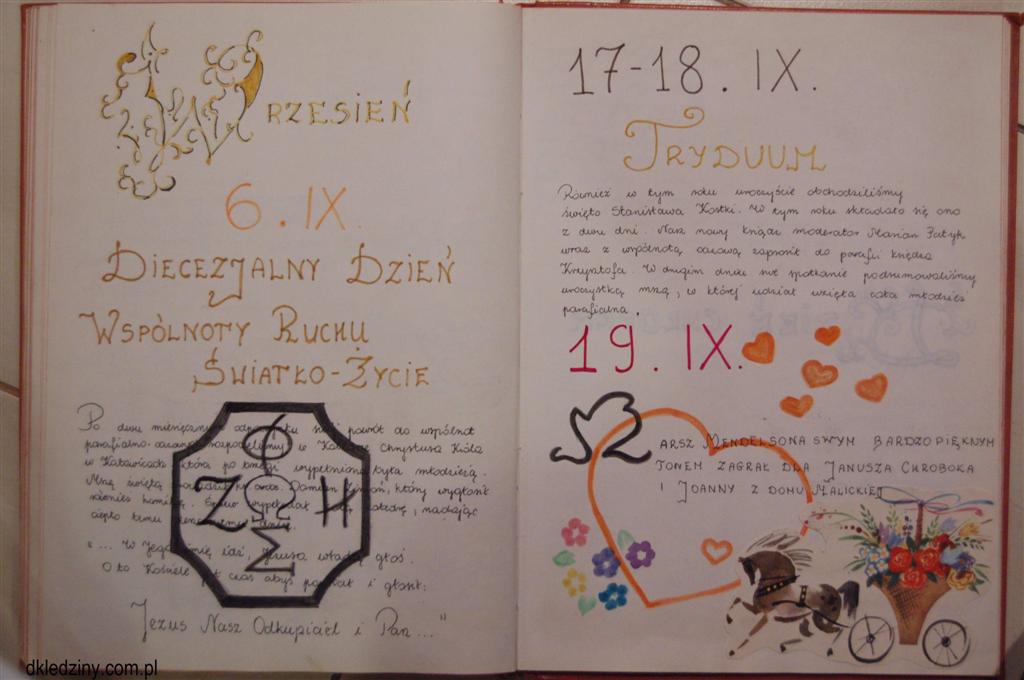 Wrzesień
6. IX.
Diecezjalny Dzień
Wspólnoty Ruchu
Światło-Życie
Po dwu miesięcznym odpoczynku powrót do wspólnot
parafialno- rozpoczęliśmy w Chrystusa Króla
w Katowicach, która po brzegi wypełniona była młodzieżą.
Mszę świętą Damian Zimoń, który wygłosił
również homilię. Śpiew katedrę, nadając
ciepło temu
"... W Jego imię idź, Jezusa władzę głoś.
O to Kościele jest czas abyś powstał i głosił:
Jezus Nasz Odkupiciel i Pan..."
ΦΩΣ
ΖΩΗ
17-18. IX.
Tryduum
Również w tym roku uroczyście obchodziliśmy
święto Stanisława Kostki. W tym roku składało się ono
z dwu dni. Nasz nowy ksiądz moderator Marian
wraz z wspólnotą oazową zaprosił do parafii księdza
Krzysztofa. W drugim dniu swe spotkanie podsumowaliśmy
uroczystą mszą, w której udział wzięła cała młodzież
parafialna.
19. IX.
Marsz Mendelsona swym bardzo pięknym
tonem zagrał dla Janusza Chroboka
i Joanny z domu Malickiej
dkledziny.com.pl